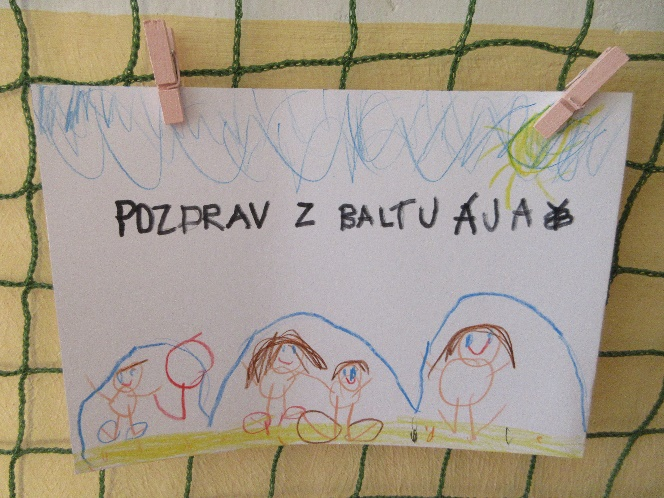 POZDRAV Z BALTU ÁJA